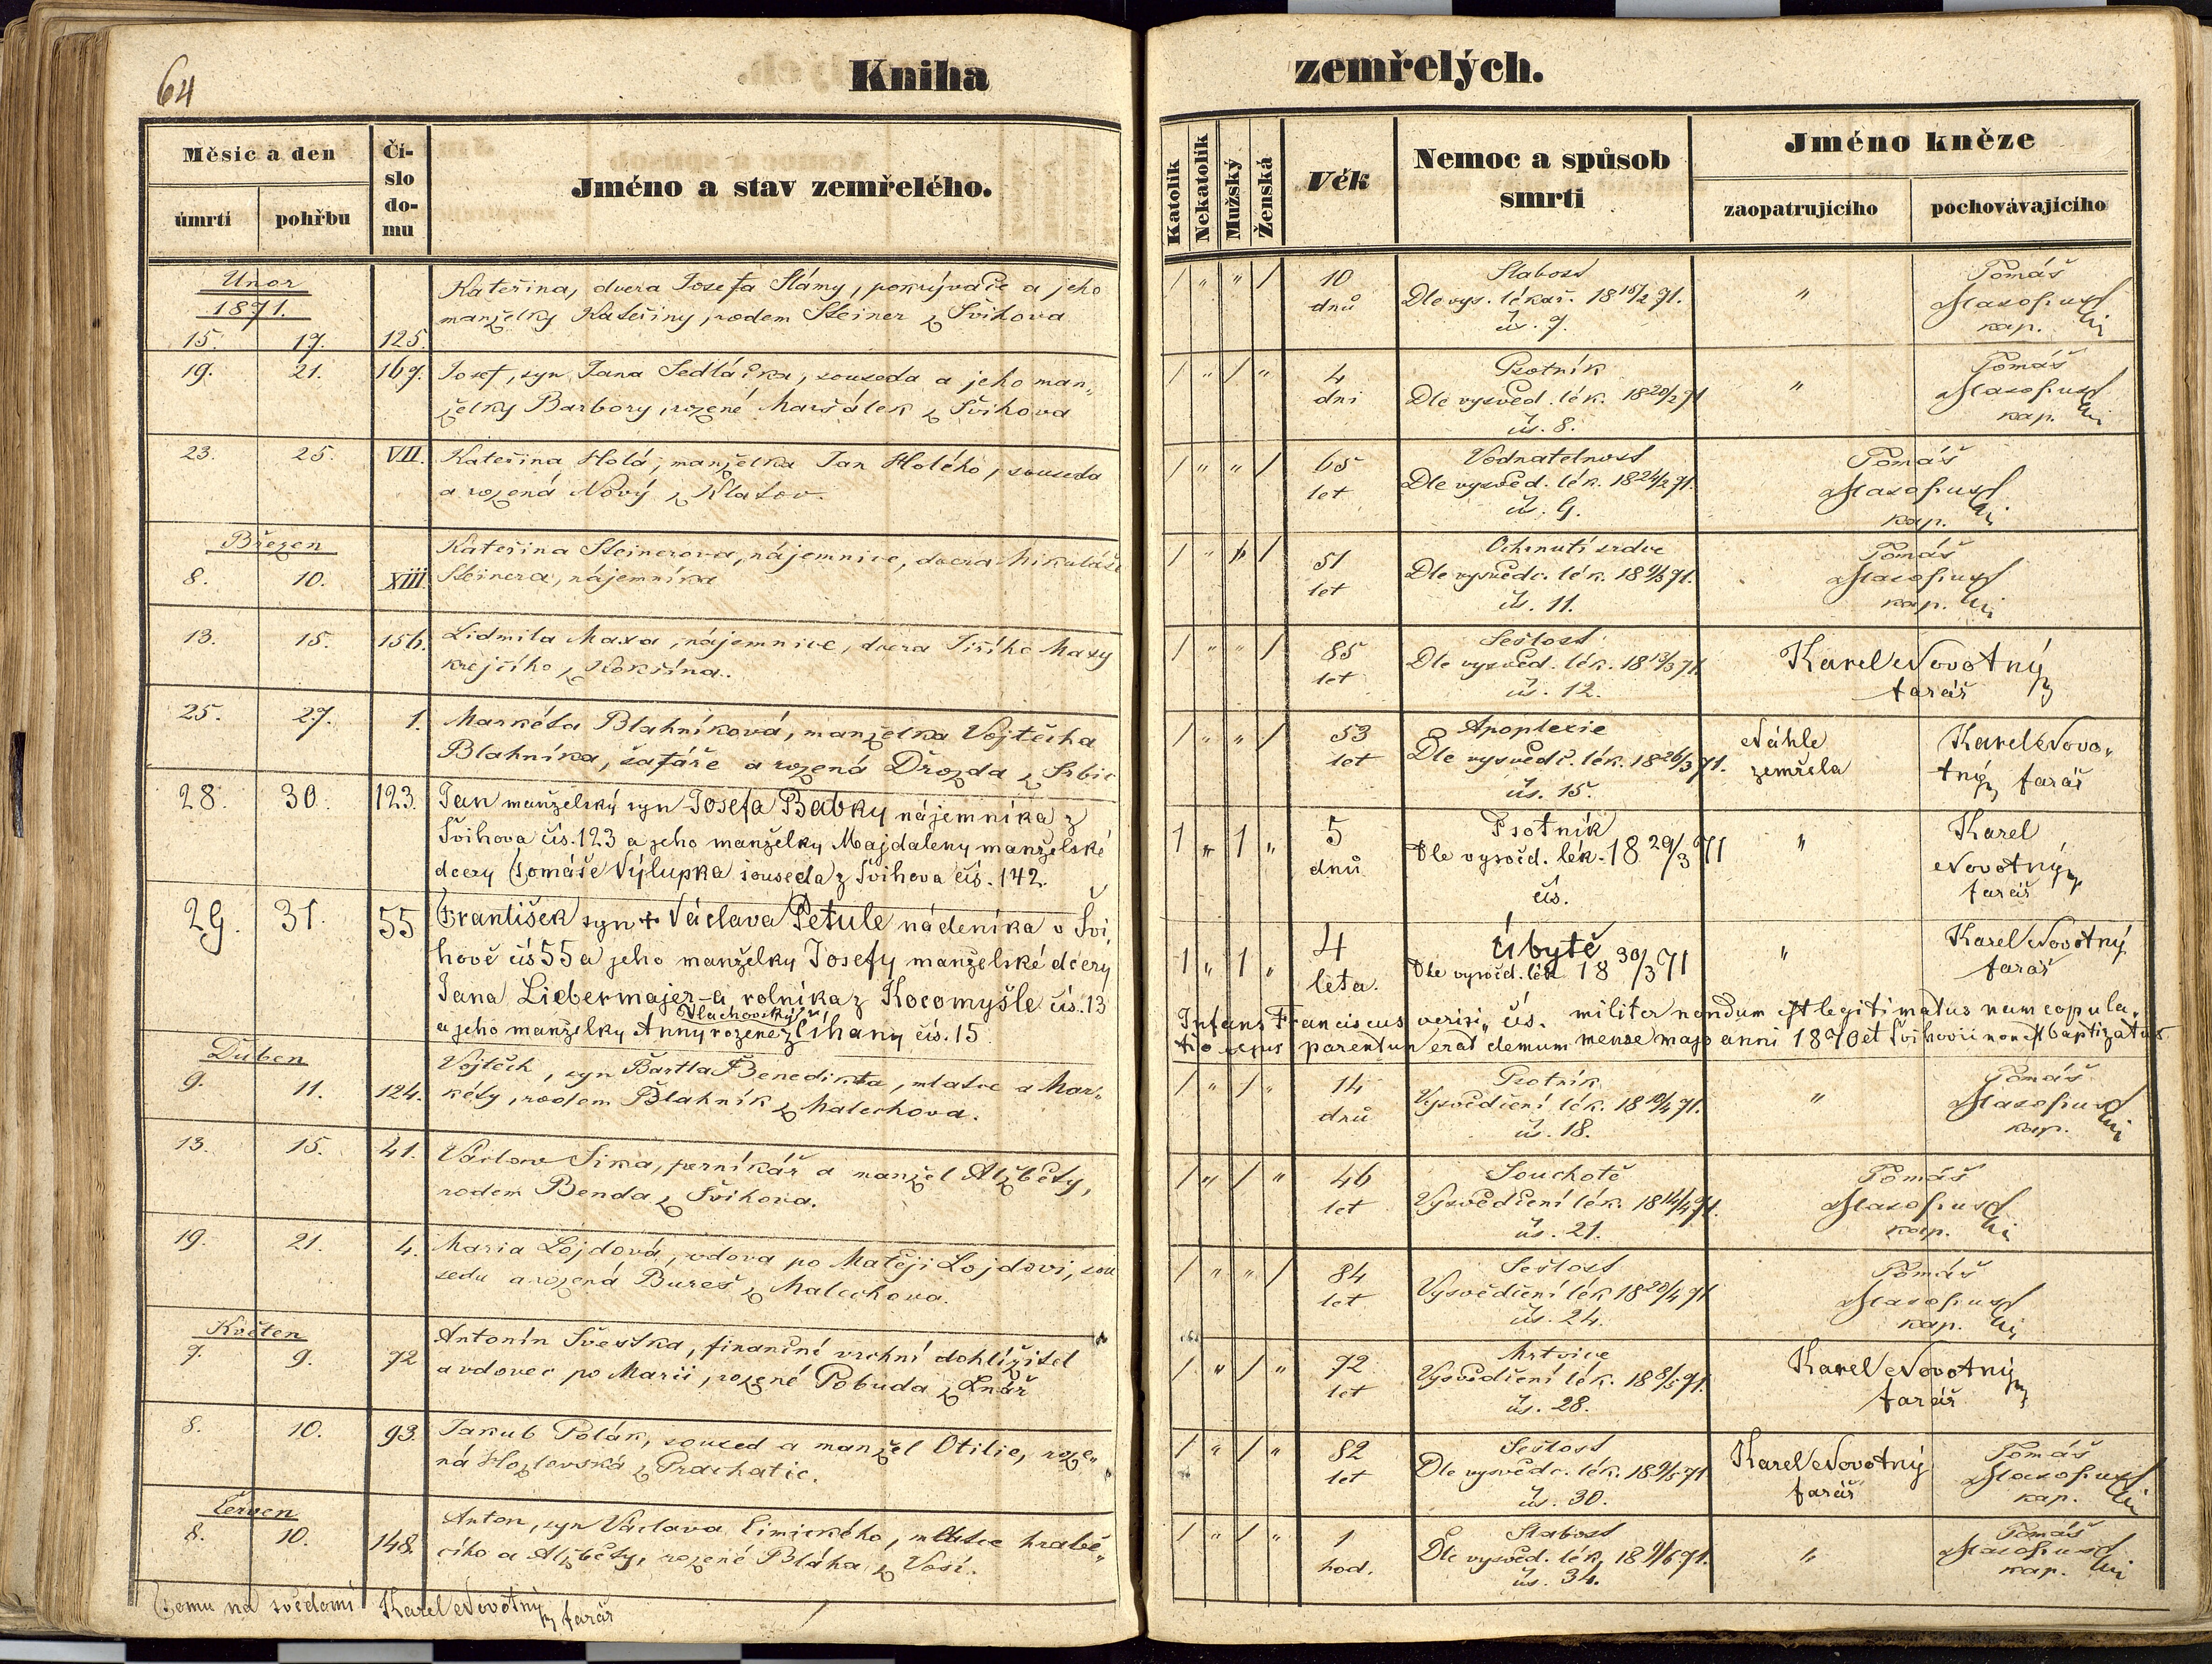 64
Kniha zemřelých.
Měsíc a den
úmrtí
pohřbu
Čí-
slo
do-
mu
Jméno a stav zemřelého.
Katolík
Nekatolík
Mužský
Ženská
Věk
Nemoc a spůsob
smrti
Jméno kněze
zaopatrujícího
pochovávajícího
Únor
1871.
15. 17. 125.
Kateřina, dcera Josefa Slámy, pokrývače a jeho
manželky Kateřiny, rodem Steiner z Švihova
/ " " /
10
dnů
Slabost
Dle vys. lékař. 18 15/2 71.
čís. 7.
"
Tomáš
kap.
19. 21. 167.
Josef, syn Jana Sedláčka, souseda a jeho man„
želky Barbory, rozené Maršálek z Švihova
/ " / "
4
dni
Psotník
Dle vysvěd. lék. 18 20/2 71
čís. 8.
"
Tomáš
kap.
23. 25. VII.
Kateřina Holá, manželka Jan Holého, souseda
a rozená Nový z Klatov.
/ " " /
65
let
Vodnatelnost
Dle vysvěd. lék. 18 24/2 71.
čís. 9.
Tomáš
kap.
Březen
8. 10. XIII.
Kateřina Steinerova, nájemnice, dcera Mikuláše
Steinera, nájemníka
/ " /
51
let
Ochrnutí srdce
Dle vysvědc. lék. 18 9/3 71.
čís. 11.
Tomáš
kap.
13. 15. 156.
Lidmila Maxa, nájemnice, dcera Jiřího Maxy
krejčího z Kokšína.
/ " " /
85
let
Sešlost
Dle vysvěd. lék. 18 13/3 71.
čís. 12.
Karel Novotný
farář
25. 27. 1.
Markéta Blahníková, manželka Vojtěcha
Blahníka, šafáře a rozená Drozda z Srbic
/ " " /
53
let
Apoplexie
Dle vysvědč. lék. 18 26/3 71.
čís. 15.
Náhle
zemřela
Karel Novo„
tný farář
28. 30. 123.
Jan manželský syn Josefa Babky nájemníka z
Švihova čís. 123 a jeho manželky Majdaleny manželské
dcery Tomáše Výlupka souseda z Švihova čís. 142.
1 " 1 "
5
dnů
Psotník
Dle vysvěd. lék. 18 29/3 71
čís.
"
Karel
Novotný
farář
29. 31. 55
František syn + Václava Petule nádeníka v Švi
hově čís 55 a jeho manželky Josefy manželské dcery
Jana Liebermajer-a rolníka z Kocomyšle čís. 13
Vlachovský
a jeho manželky Anny rozené z Líhany čís. 15
1 " 1 "
4
leta.
Úbytě
Dle vysvěd. lék 18 30/3 71
čís.
"
Karel Novotný
farář
Infans Franciscus militer nondum est legitimatus nam copula„
tio ejus parentum erat demum mense majo anni 1870 et Švihovii non est baptizatus
Duben
9. 11. 124.
Vojtěch, syn Bartla Benedikta, mlatce a Mar„
kéty, rodem Blahník z Malechova.
/ " / "
14
dnů
Psotník
Vysvědčení lék. 18 10/4 71.
čís. 18.
"
Tomáš
kap.
13. 15. 41.
Václav Sika, perníkář a manžel Alžběty,
rodem Benda z Švihova.
/ " / "
46
let
Souchotě
Vysvědčení lék. 18 14/4 71.
čís. 21.
Tomáš
kap.
19. 21. 4.
Maria Lojdová, vdova po Matěji Lojdovi, sou
sedu a rozená Bureš z Malechova.
/ " " /
84
let
Sešlost
Vysvědčení lék 18 20/4 71
čís. 24.
Tomáš
kap.
Květen
7. 9. 72
Antonín Švestka, finanční vrchní dohlížitel
a vdovec po Marii, rozené Pobuda z Lnář
/ " / "
72
let
Mrtvice
Vysvědčení lék. 18 8/5 71.
čís. 28.
Karel Novotný
farář
8. 10. 93.
Jakub Polák, soused a manžel Otilie, roze„
ná Hozlovská z Prachatic.
/ " / "
82
let
Sešlost
Dle vysvědc. lék. 18 9/5 71.
čís. 30.
Karel Novotný
farář
Tomáš
kap.
Červen
8. 10. 148.
Anton, syn Václava Cimického, mlatce hrabě„
cího a Alžběty, rozené Bláha z Vosí.
/ " / "
1
hod.
Slabost
Dle vysvěd. lék. 18 9/6 71.
čís. 34.
"
Tomáš
kap.
Čemu na svědomí Karel Novotný farář